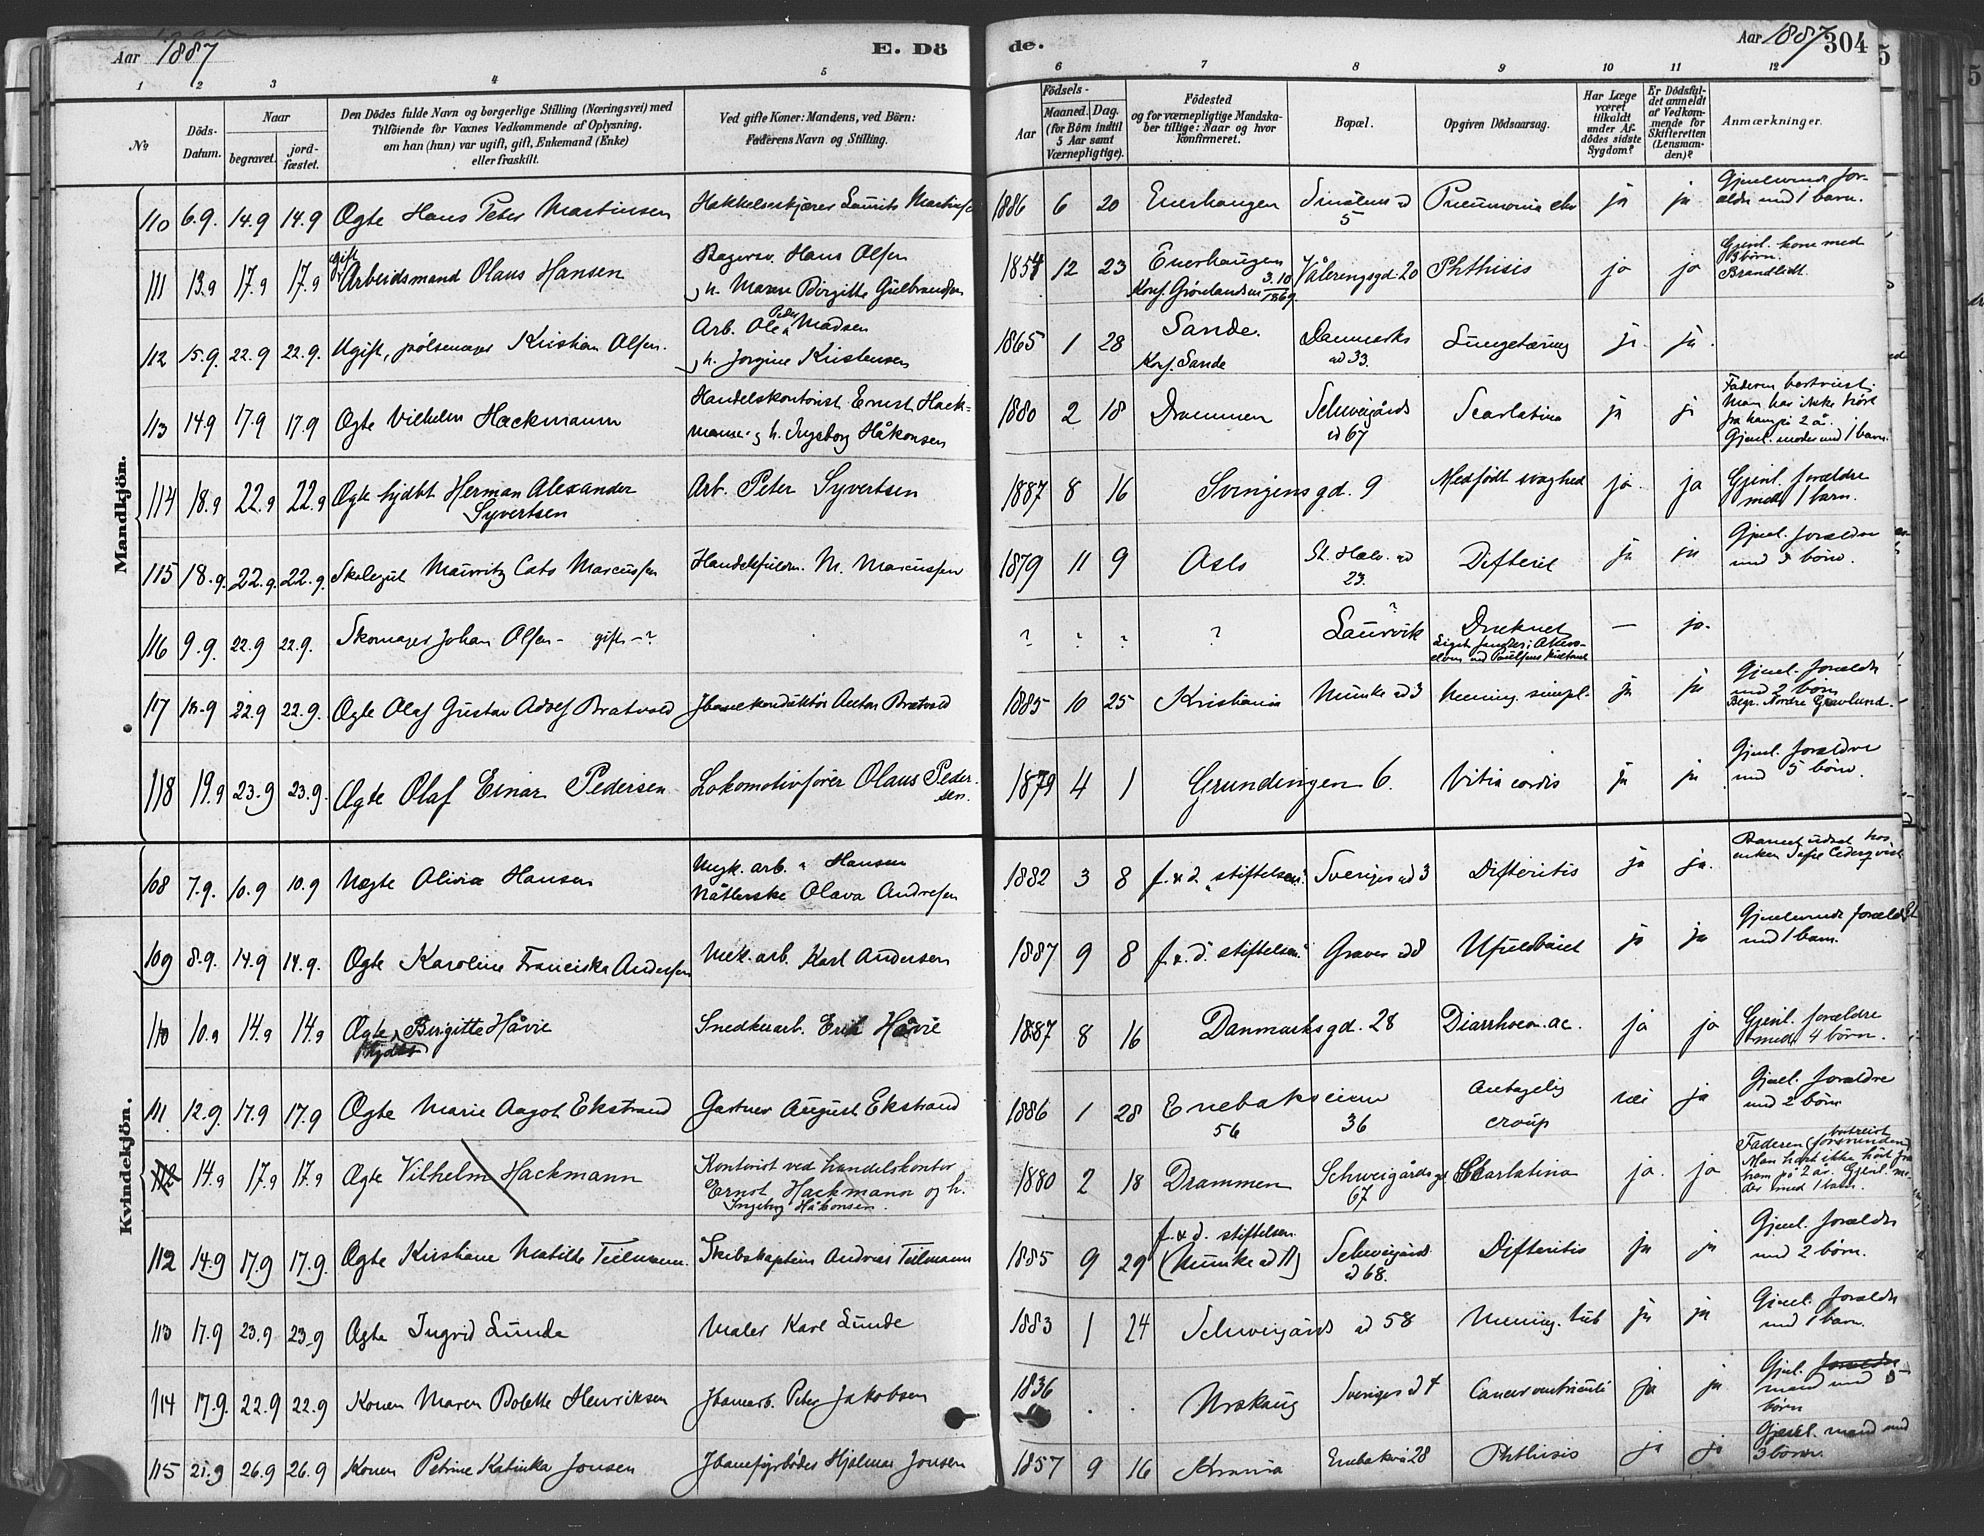 Aar 1887
E. Dö
de.
Aar 1887
304
1 2 3 4 5 6 7 8 9 10 11 12
No
Döds-Datum.
Naar
begravet.
jordfæstet.
Den Dödes fulde Navn og borgerlige Stilling (Næringsvei) med
Tilföiende for Voxnes Vedkommende af Oplysning,
om han (hun) var ugift, gift, Enkemand (Enke)
eller fraskilt.
Ved gifte Koner: Mandens, ved Börn:
Faderens Navn og Stilling.
Födsels-
Aar
Maaned. Dag.
(for Börn indtil
5 Aar samt
Værnepligtige).
Födested
og for værnepligtige Mandska-
ber tillige: Naar og hvor
konfirmeret.
Bopæl.
Opgiven Dödsaarsag.
Har Læge
været
tilkaldt
under Af-
dödes sidste
Sygdom?
Er Dödsfal-
det anmeldt
af Vedkom-
mende for
Skifteretten
(Lensman-
den)?
Anmærkninger.
Mandkjön.
110 6.9. 14.9 14.9 Ægte Hans Peter Martinsen Hakkelseskjærer Laurits Martinsen 1886 6 20 Enerhaugen Smålens gd 5 Pneumonia ja ja Gjenlevende forældre med 1 barn.
111 13.9 17.9 17.9 gift Arbeidsmand Olaus Hansen Bagersv. Hans Olsen og h. Maren Birgitte Gulbrandsen 1854 12 23 Enerhaugen Konf. Grønlands 3.10 1869 Vålerenggd. 20 Phthisis ja ja Gjenl. kone med 3 börn. Brandlidt.
112 15.9 22.9 22.9. Ugift, pølsemager Kristian Olsen. Arb. Ole Peder Madsen og h. Jorgine Kristensen 1865 1 28 Sande. Konf. Sande Danmarks gd 33. Lungetæring ja ja.
113 14.9 17.9 17.9 Ægte Vilhelm Hackmann Handelskontorist Ernst Hackmann og h. Ingeborg Håkonsen 1880 2 18 Drammen Schweigårds gd 67 Scarlatina ja ja Faderen bortreist. Man har ikke hört fra ham på 2 år. Gjenl. moder med 1 barn.
114 18.9 22.9 22.9 Ægte hjdbt Herman Alexander Syvertsen Arb. Peter Syvertsen 1887 8 16 Svingens gd. 9 Medfödt svaghed ja ja Gjenl. forældre med 1 barn.
115 18.9 22.9. 22.9. Skolegut Mauritz Cato Marcussen Handelsfuldm. M. Marcussen 1879 11 9 Oslo St. Halv. gd 23. Difterit ja ja Gjenl. forældre med 3 börn.
116 9.9. 22.9 22.9. Skomager Johan Olsen - gift - ? ? ? ? ? Laurvik ? Druknet — ja.
117 22.9 22.9. Ægte Olaf Gustav Adolf Bratvold Jbanekonduktör Anton Bratvold 1885 10 25 Kristiania Munke gd 3 Mening. simpl. ja ja Gjenl. forældre med 2 börn Begr. Nordre Gravlund.
118 19.9 23.9 23.9. Ægte Olaf Einar Pedersen Lokomotivförer Olaus Pedersen. 1879 4 1 Grundingen 6. Vitia cordis ja ja Gjenl. forældre med 5 börn.
Kvindekjön.
108 7.9. 10.9 10.9 Uægte Olivia Hansen Mek. arb. Hansen Olava Andresen 1882 3 8 f. & d. stiftelsen. Sveriges gd 3 Difteritis ja ja. Barnet udsat hos enken Sofie Cederqvist
109 8.9. 14.9 14.9. Ægte Karoline Franciska Andersen Mek. arb. Karl Andersen 1887 9 8 f. & d. stiftelsen. Graver gd 8 Ufuldbåret ja ja Gjenlevende forældre med 1 barn.
110 10.9 14.9 14.9 Ægte hjdbt Birgitte Håvie Snedkerarb. Erik Håvie 1887 8 16 Danmarks gd. 28 Diarrhoea ac. ja ja Gjenl. forældre med 4 börn.
111. 12.9. 17.9 17.9 Ægte Marie Aagot Ekstrand Gartner August Ekstrand 1886 1 28 Enebakveien 56 36 Antagelig croup nei ja Gjenl. forældre med 2 börn
112 14.9 17.9 17.9 Ægte Vilhelm Hackmann Kontorist ved handelskontor Ernst Hackmann og h. Ingeborg Håkonsen. 1880 2 18 Drammen Schweigårds gd 67 Scarlatina ja ja Faderen bortreist (forsvunden) Man har ikke hört fra ham på 2 år. Gjenl. moder med 1 barn.
112 14.9 17.9 17.9. Ægte Kirstine Matilde Teilmann. Skibskaptein Andreas Teilmann 1885 9 29 f. & d. stiftelsen (Munke gd 11) Schweigårds gd 68. Difteritis ja ja Gjenl. forældre med 2 börn.
113 17.9 23.9 23.9 Ægte Ingrid Lunde Maler Karl Lunde 1883 1 24 Schweigårds gd 58 Mening. tub ja ja Gjenl. forældre med 1 barn.
114 17.9. 22.9 22.9 Konen Maren Bolette Henriksen Jbanearb. Peter Jakobsen 1836 . . Urskoug Sveriges gd 4 Cancer ventriculi ja ja Gjenl. forældre mand med 5 börn
115 21.9 26.9 26.9 Konen Petrine Katinka Jonsen Jbanefyrböder Hjalmar Jonsen 1857 9 16 Krania Enebakv 28 Phthisis ja ja Gjenl. mand med 3 börn.